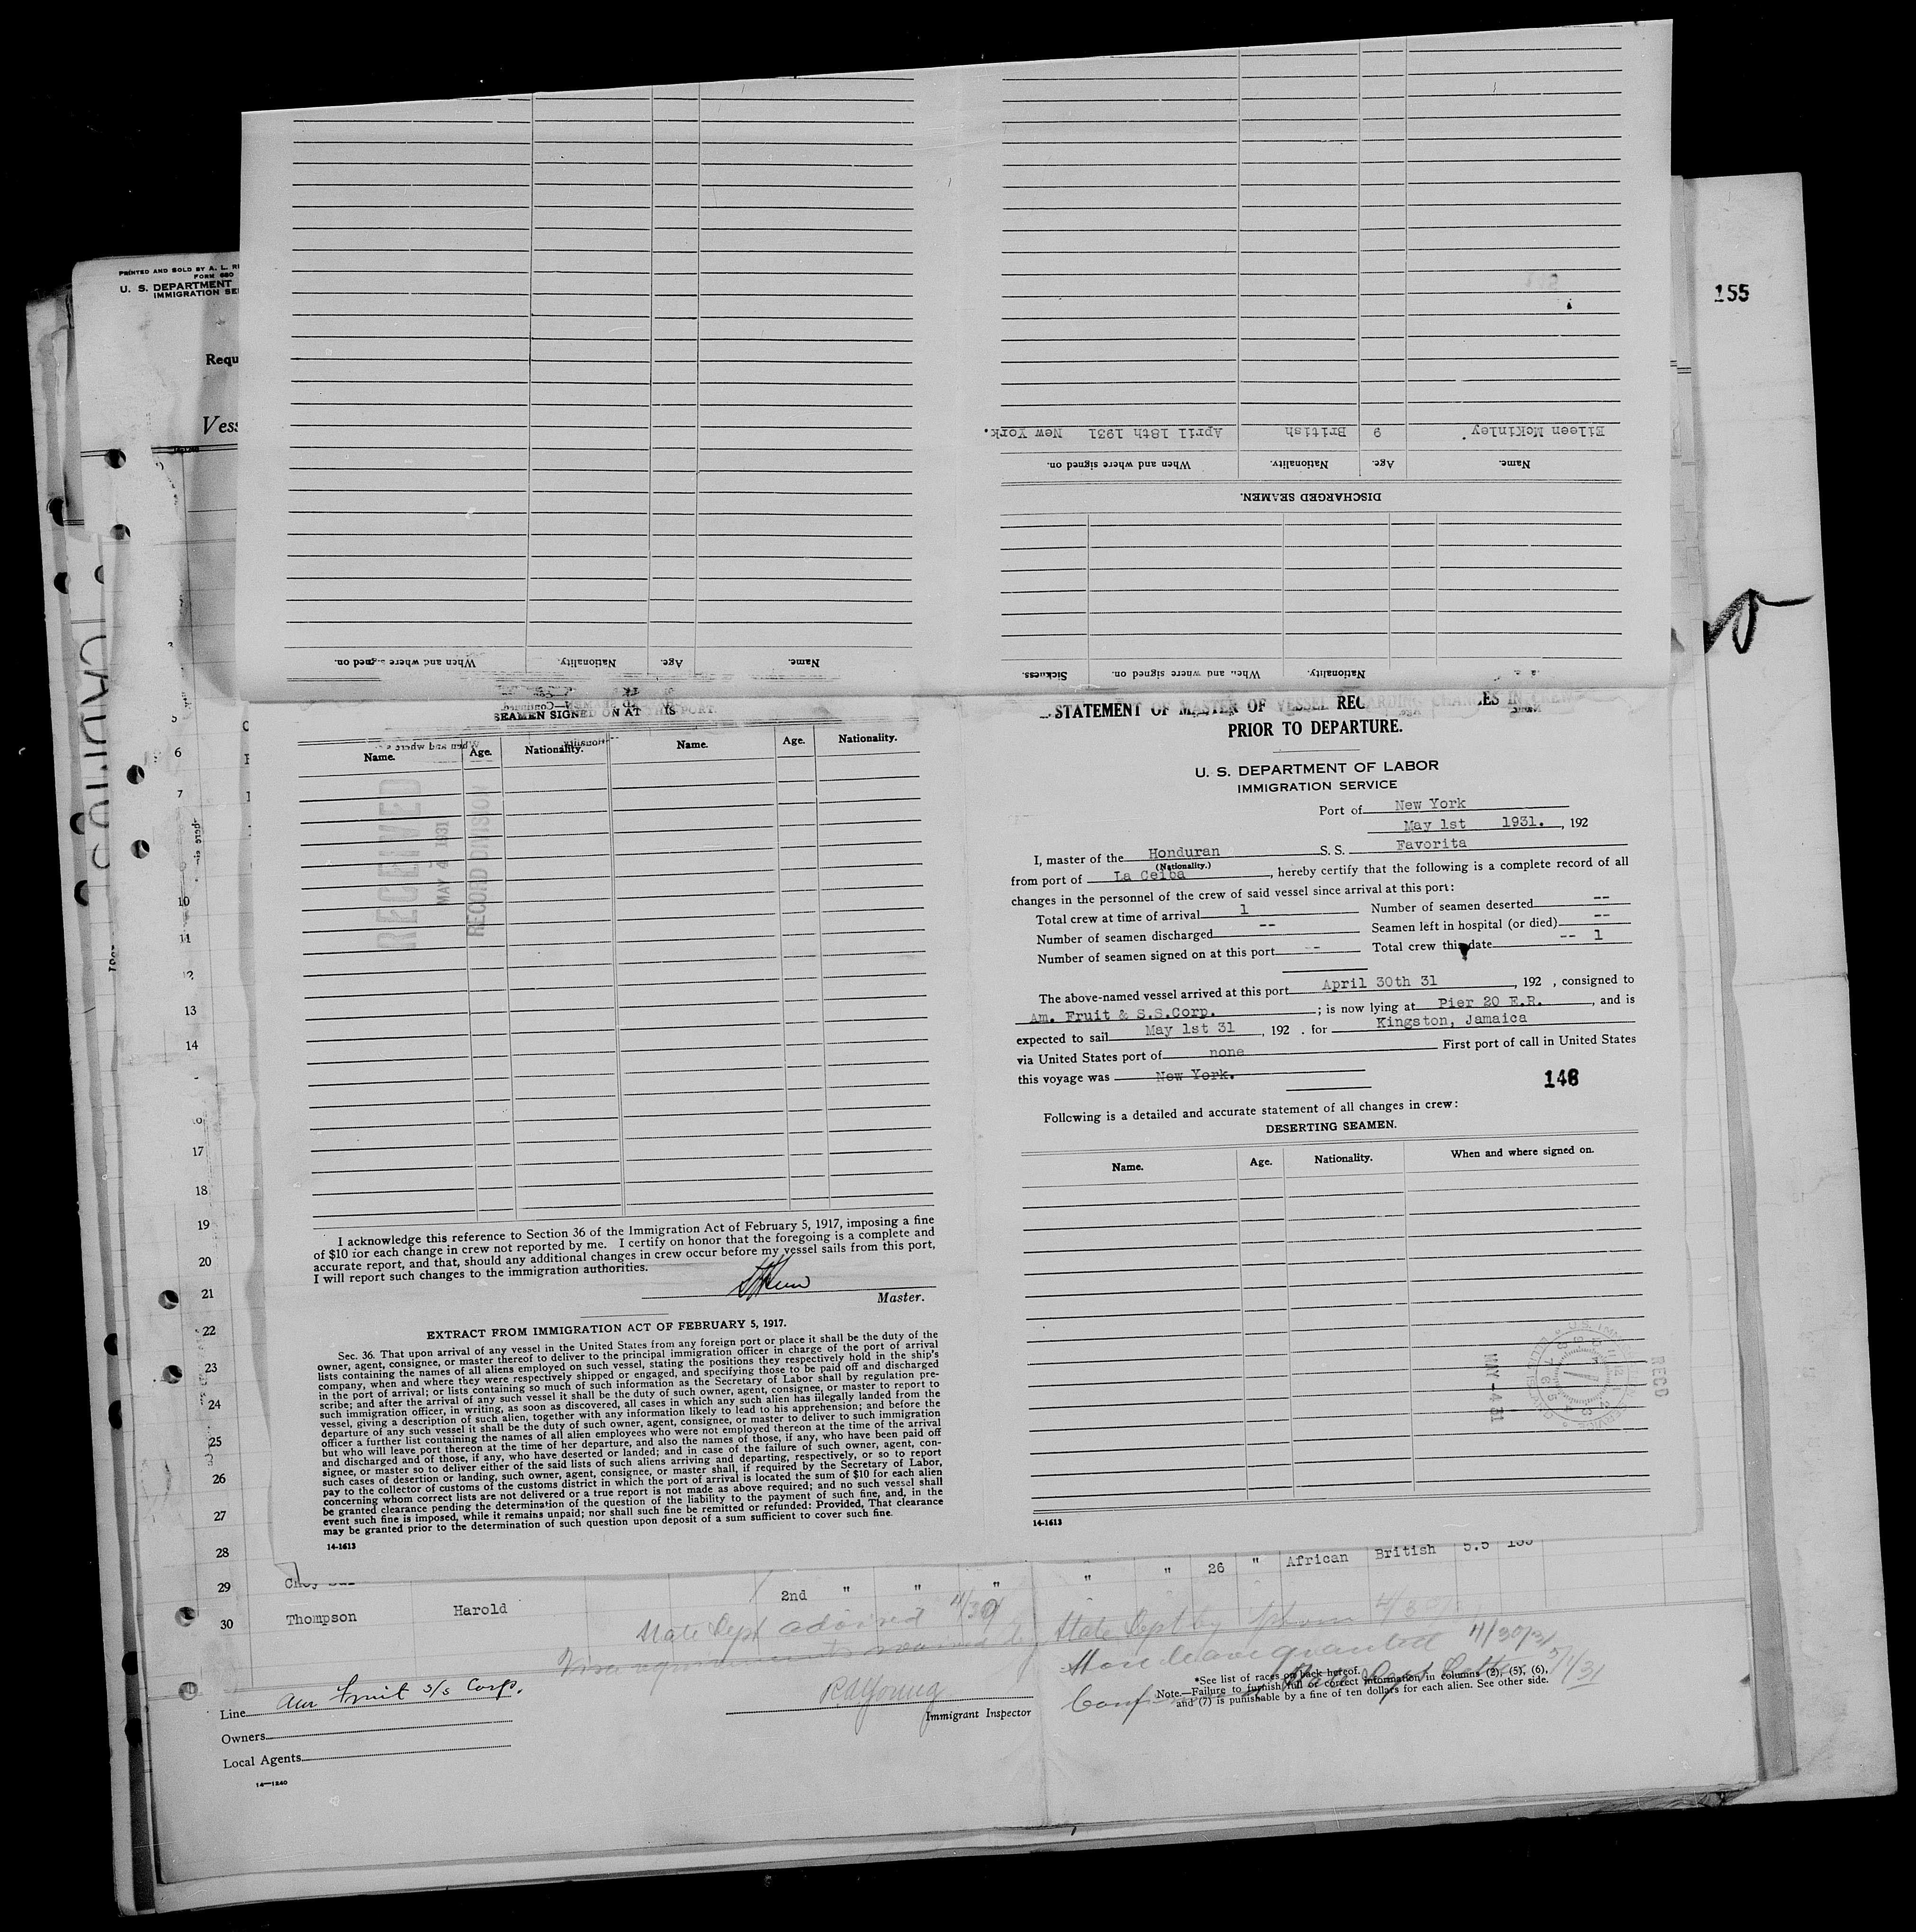 PRINTED AND SOLD BY A. L.
FORM 680
U. S. DEPARTMENT
IMMIGRATION
155
Requ
Vess
Eileen McKinley. 9 British April 18th 1931 New York.
Name. Age. Nationality. When and where signed on.
DISCHARGED SEAMEN.
Nationality. When and where signed on. Sickness.
Name. Age. Nationality. When and where signed on.
SEAMEN SIGNED ON AT THIS PORT.
Name. Age. Nationality. Name. Age. Nationality.
RECEIVED
MAY 4 1931
RECORD DIVISION
I acknowledge this reference to Section 36 of the Immigration Act of February 5, 1917, imposing a fine
of $10 for each change in crew not reported by me. I certify on honor that the foregoing is a complete and
accurate report, and that, should any additional changes in crew occur before my vessel sails from this port,
I will report such changes to the immigration authorities.
Master.
EXTRACT FROM IMMIGRATION ACT OF FEBRUARY 5, 1917.
Sec. 36. That upon arrival of any vessel in the United States from any foreign port or place it shall be the duty of the
owner, agent, consignee, or master thereof to deliver to the principal immigration officer in charge of the port of arrival
lists containing the names of all aliens employed on such vessel, stating the positions they respectively hold in the ship's
company, when and where they were respectively shipped or engaged, and specifying those to be paid off and discharged
in the port of arrival; or lists containing so much of such information as the Secretary of Labor shall by regulation pre-
scribe; and after the arrival of any such vessel it shall be the duty of such owner, agent, consignee, or master to report to
such immigration officer, in writing, as soon as discovered, all cases in which any such alien has illegally landed from the
vessel, giving a description of such alien, together with any information likely to lead to his apprehension; and before the
departure of any such vessel it shall be the duty of such owner, agent, consignee, or master to deliver to such immigration
officer a further list containing the names of all alien employees who were not employed thereon at the time of the arrival
but who will leave port thereon at the time of her departure, and also the names of those, if any, who have been paid off
and discharged and of those, if any, who have deserted or landed; and in case of the failure of such owner, agent, con-
signee, or master so to deliver either of the said lists of such aliens arriving and departing, respectively, or so to report
such cases of desertion or landing, such owner, agent, consignee, or master shall, if required by the Secretary of Labor,
pay to the collector of customs of the customs district in which the port of arrival is located the sum of $10 for each alien
concerning whom correct lists are not delivered or a true report is not made as above required; and no such vessel shall
be granted clearance pending the determination of the question of the liability to the payment of such fine, and, in the
event such fine is imposed, while it remains unpaid; nor shall such fine be remitted or refunded: Provided, That clearance
may be granted prior to the determination of such question upon deposit of a sum sufficient to cover such fine.
14-1613
STATEMENT OF MASTER OF VESSEL REGARDING CHANGES IN CREW
PRIOR TO DEPARTURE.
U. S. DEPARTMENT OF LABOR
IMMIGRATION SERVICE
Port of New York
May 1st 1931. , 192
I, master of the Honduran S. S. Favorita
(Nationality.)
from port of La Ceiba , hereby certify that the following is a complete record of all
changes in the personnel of the crew of said vessel since arrival at this port:
Total crew at time of arrival 1 Number of seamen deserted --
Number of seamen discharged -- Seamen left in hospital (or died) --
Number of seamen signed on at this port -- Total crew this date -- 1
The above-named vessel arrived at this port April 30th 31 , 192 , consigned to
Am. Fruit & S.S.Corp. ; is now lying at Pier 20 E.R. , and is
expected to sail May 1st 31 , 192 . for Kingston, Jamaica
via United States port of none First port of call in United States
this voyage was New York.
146
Following is a detailed and accurate statement of all changes in crew:
DESERTING SEAMEN.
Name. Age. Nationality. When and where signed on.
MAY -4 31
RECD
14-1613
5
6
7
10
11
12
13
14
17
18
19
20
21
22
23
24
25
26
27
28
29
30
26 " African British 5.5
Thompson Harold 2nd " " " " "
State Dept advised 4/30
State Dept by phone 4/30
Shore leave granted 4/30/31
5/1/31
Line Am Fruit S/S Corp.
Owners
Local Agents
14—1240
RdYoung
Immigrant Inspector
*See list of races on back hereof.
Note.—Failure to furnish full or correct information in columns (2), (5), (6),
and (7) is punishable by a fine of ten dollars for each alien. See other side.